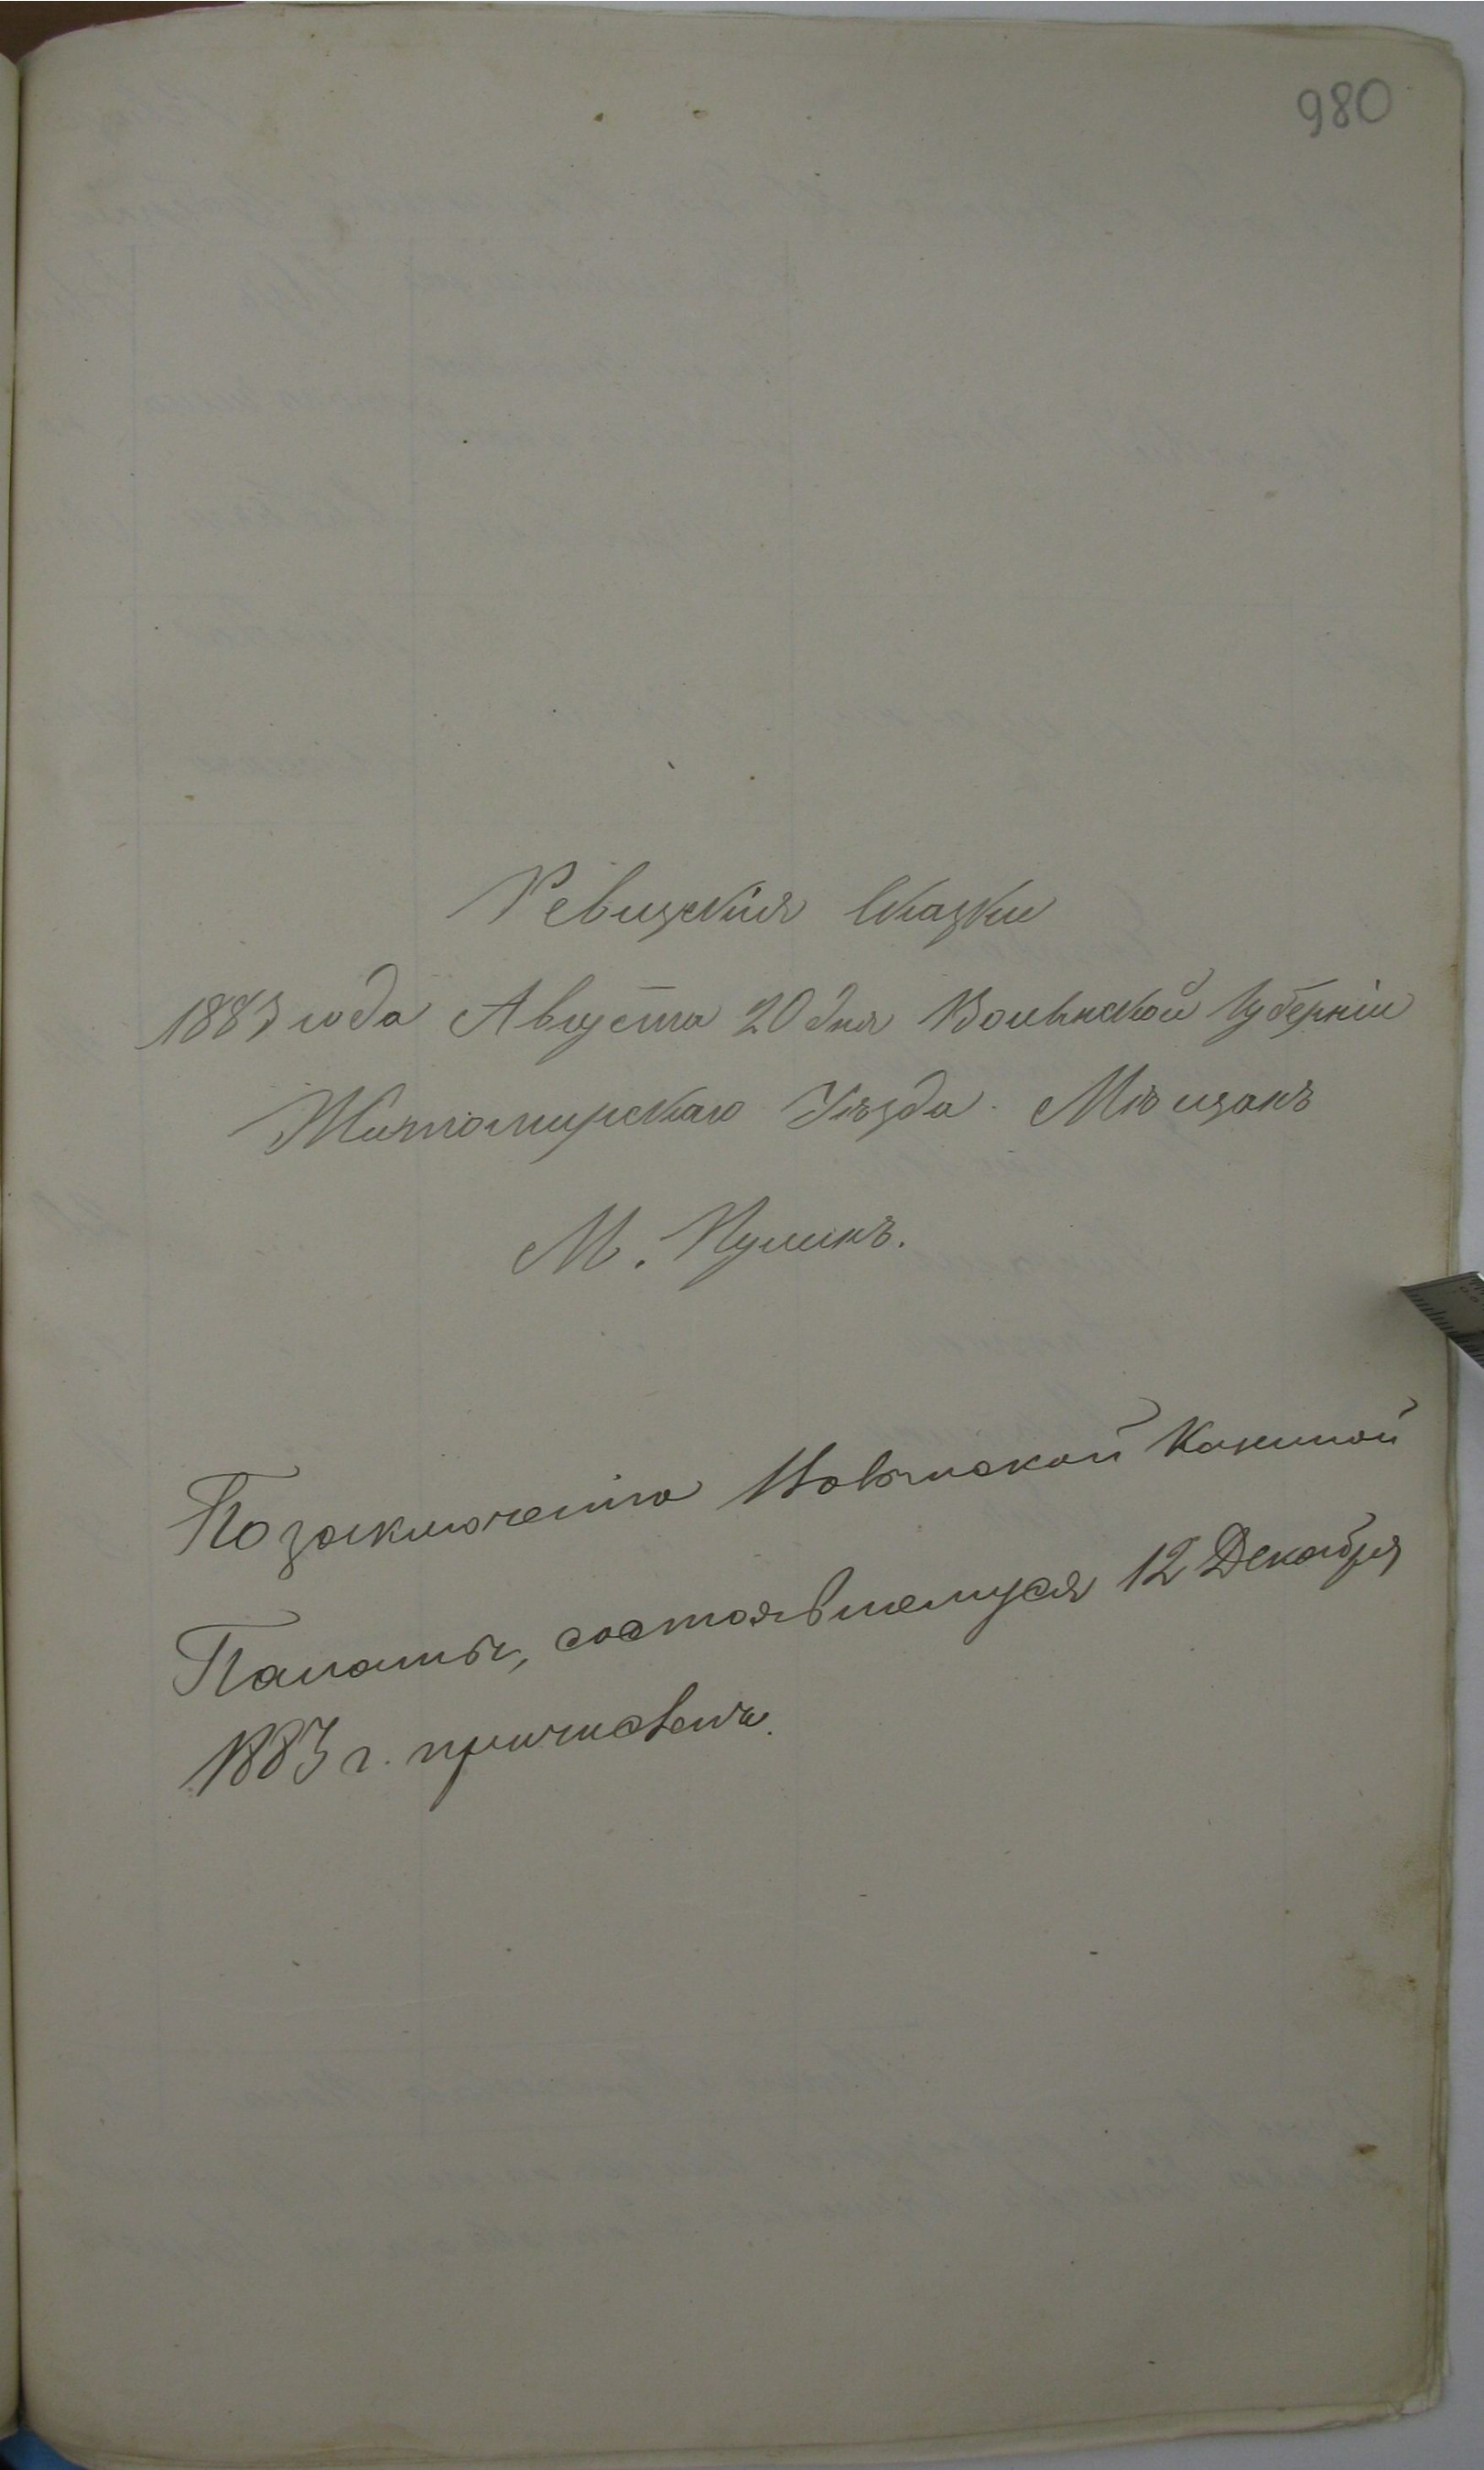 980
Ревизскія Сказки
1883 года Августа 20 дня Волынской Губерніи
Житомирскаго Уѣзда. Мѣщанъ
М. Пулинъ.
По заключенію Волынской Казенной
Палаты, состоявшемуся 12 Декабря
1883 г. причислены